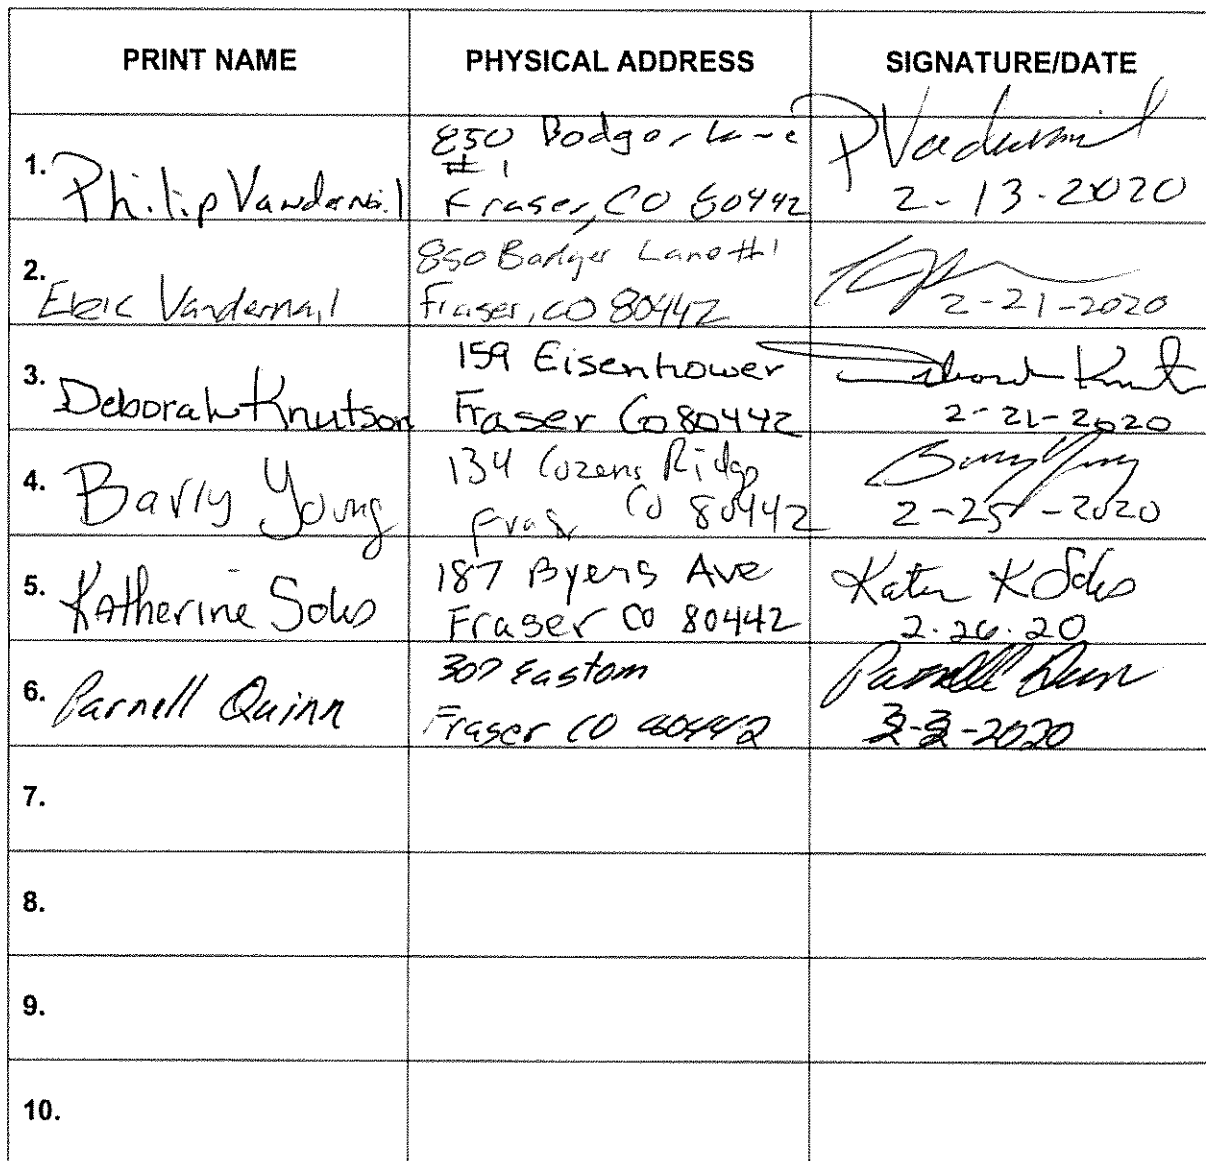 PRINT NAME PHYSICAL ADDRESS SIGNATURE/DATE
1. Philip Vandernail
850 Badger Lane
#1
Fraser, CO 80442
P Vandernail
2-13-2020
2. Eric Vandernail
850 Badger Lane #1
Fraser, CO 80442
2-21-2020
3. Deborah Knutson
159 Eisenhower
Fraser Co 80442
Deborah Knut
2-21-2020
4. Barry Young
134 Cozens Ridge
Fraser CO 80442
Barry Young
2-25-2020
5. Katherine Soles
187 Byers Ave
Fraser CO 80442
K Soles
2.26.20
6. Parnell Quinn
307 Eastom
Fraser CO 80442
Parnell Quinn
3-3-2020
7.
8.
9.
10.